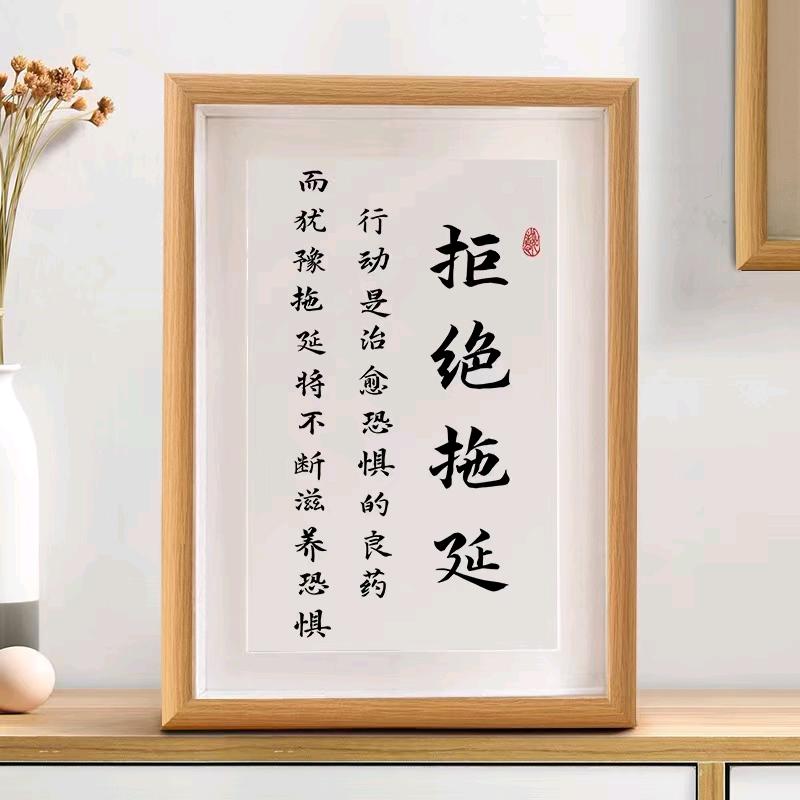 拒绝拖延
行动是治愈恐惧的良药
而犹豫拖延将不断滋养恐惧